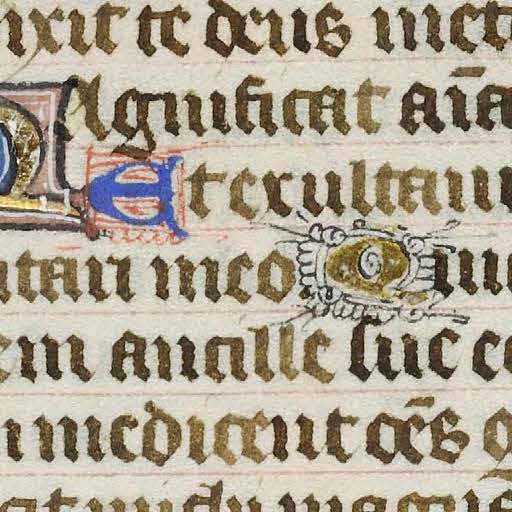 nxit te deus inet
Magnificat aīa
Et exultaui
utari meo Quia
em ancille sue ec
m me dicent oēs g